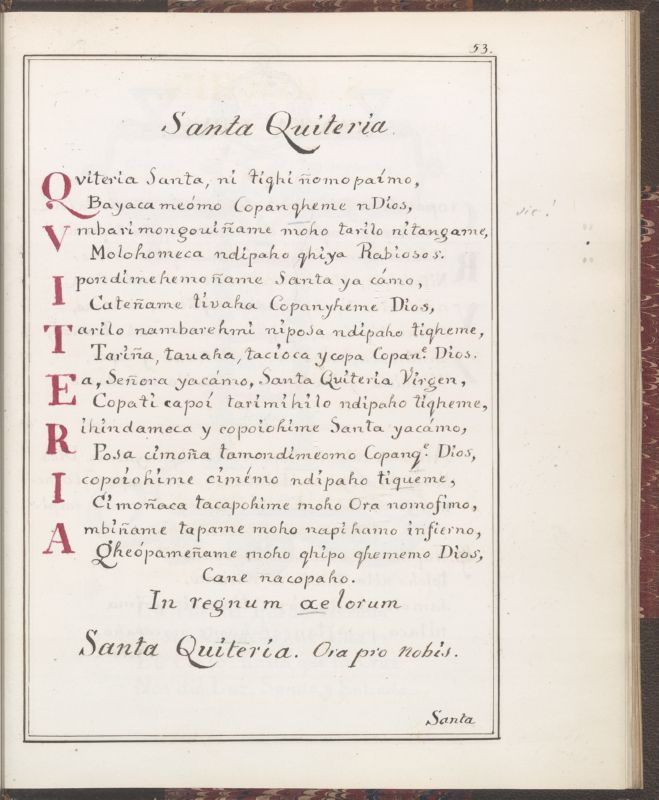 53.
Santa Quiteria
Qviteria Santa, ni tiqhi ñomo paimo,
Bayaca meómo Copanqheme nDios,
Vmbari mongouiñame moho tarilo nitangame,
Molohomeca ndipaho qhiya Rabiosos.
Ipondimehemo ñame Santa ya cámo,
Cuteñame tivaha Copanyheme Dios,
Tarilo nambarehmi niposa ndipaho tiqheme,
Tariña, tauaha, tacioca y copa Copanᵉ. Dios.
Ea, Señora yacámo, Santa Quiteria Virgen,
Copati capoi tarimihilo ndipaho tiqheme,
Rihindameca y copoiohime Santa yacámo,
Posa cimoña tamondimeomo Copanqᵉ. Dios,
Icopoiohime cimémo ndipaho tiqueme,
Cimoñaca tacapohime moho Ora nomofimo,
Ambiñame tapame moho napihamo infierno,
Qheópameñame moho qhipo qhememo Dios,
Cane nacopaho.
In regnum cœlorum
Santa Quiteria. Ora pro nobis.
Santa
sic!